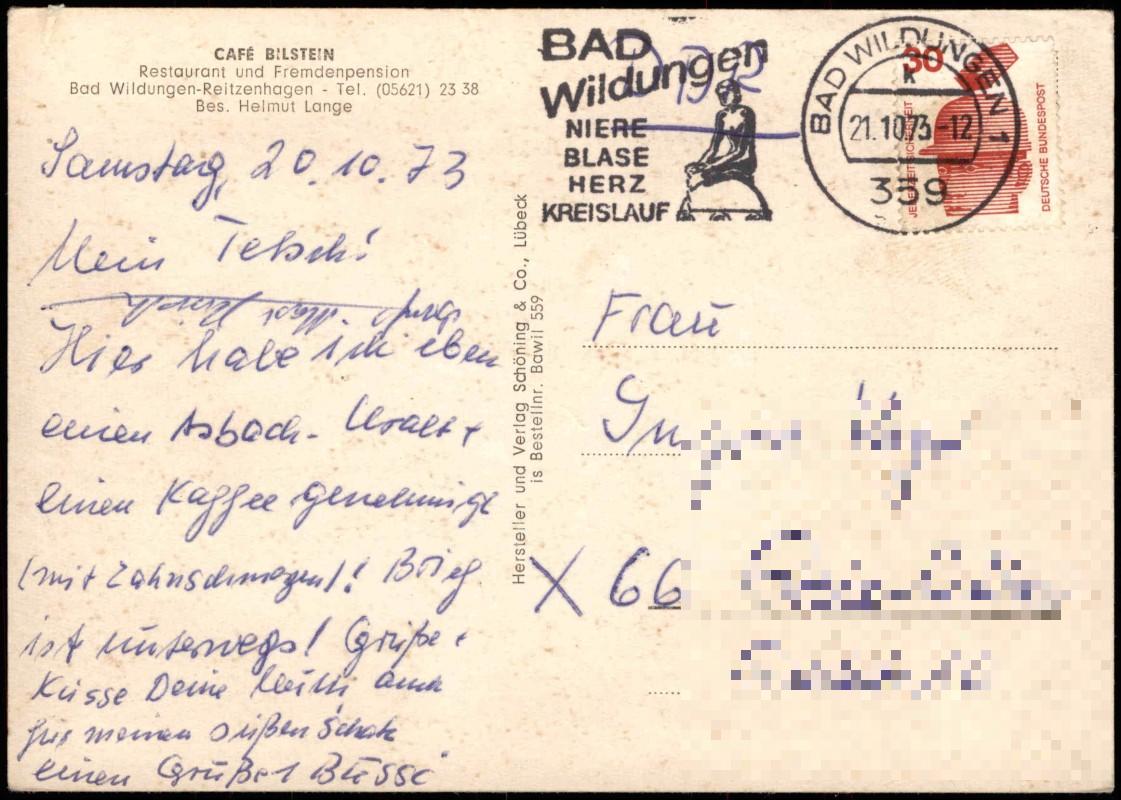 CAFÉ BILSTEIN
Restaurant und Fremdenpension
Bad Wildungen-Reitzenhagen - Tel. (05621) 23 38
Bes. Helmut Lange
Samstag, 20.10.73
Mein
Hier habe ich eben
einen Asbach-Uralt +
einen Kaffee genehmigt
(mit Zahnschmerzen)! Brief
ist unterwegs! Grüße +
Küsse Deine Mutti auch
für meinen süßen Schatz
einen Gruß +
Hersteller und Verlag Schöning & Co., Lübeck
is Bestellnr. Bawil 559
BAD
Wildungen
NIERE
BLASE
HERZ
KREISLAUF
DDR
BAD WILDUNGEN 1
k
21.10.73-12
359
30
JEDERZEIT SICHERHEIT
DEUTSCHE BUNDESPOST
Frau
X 66